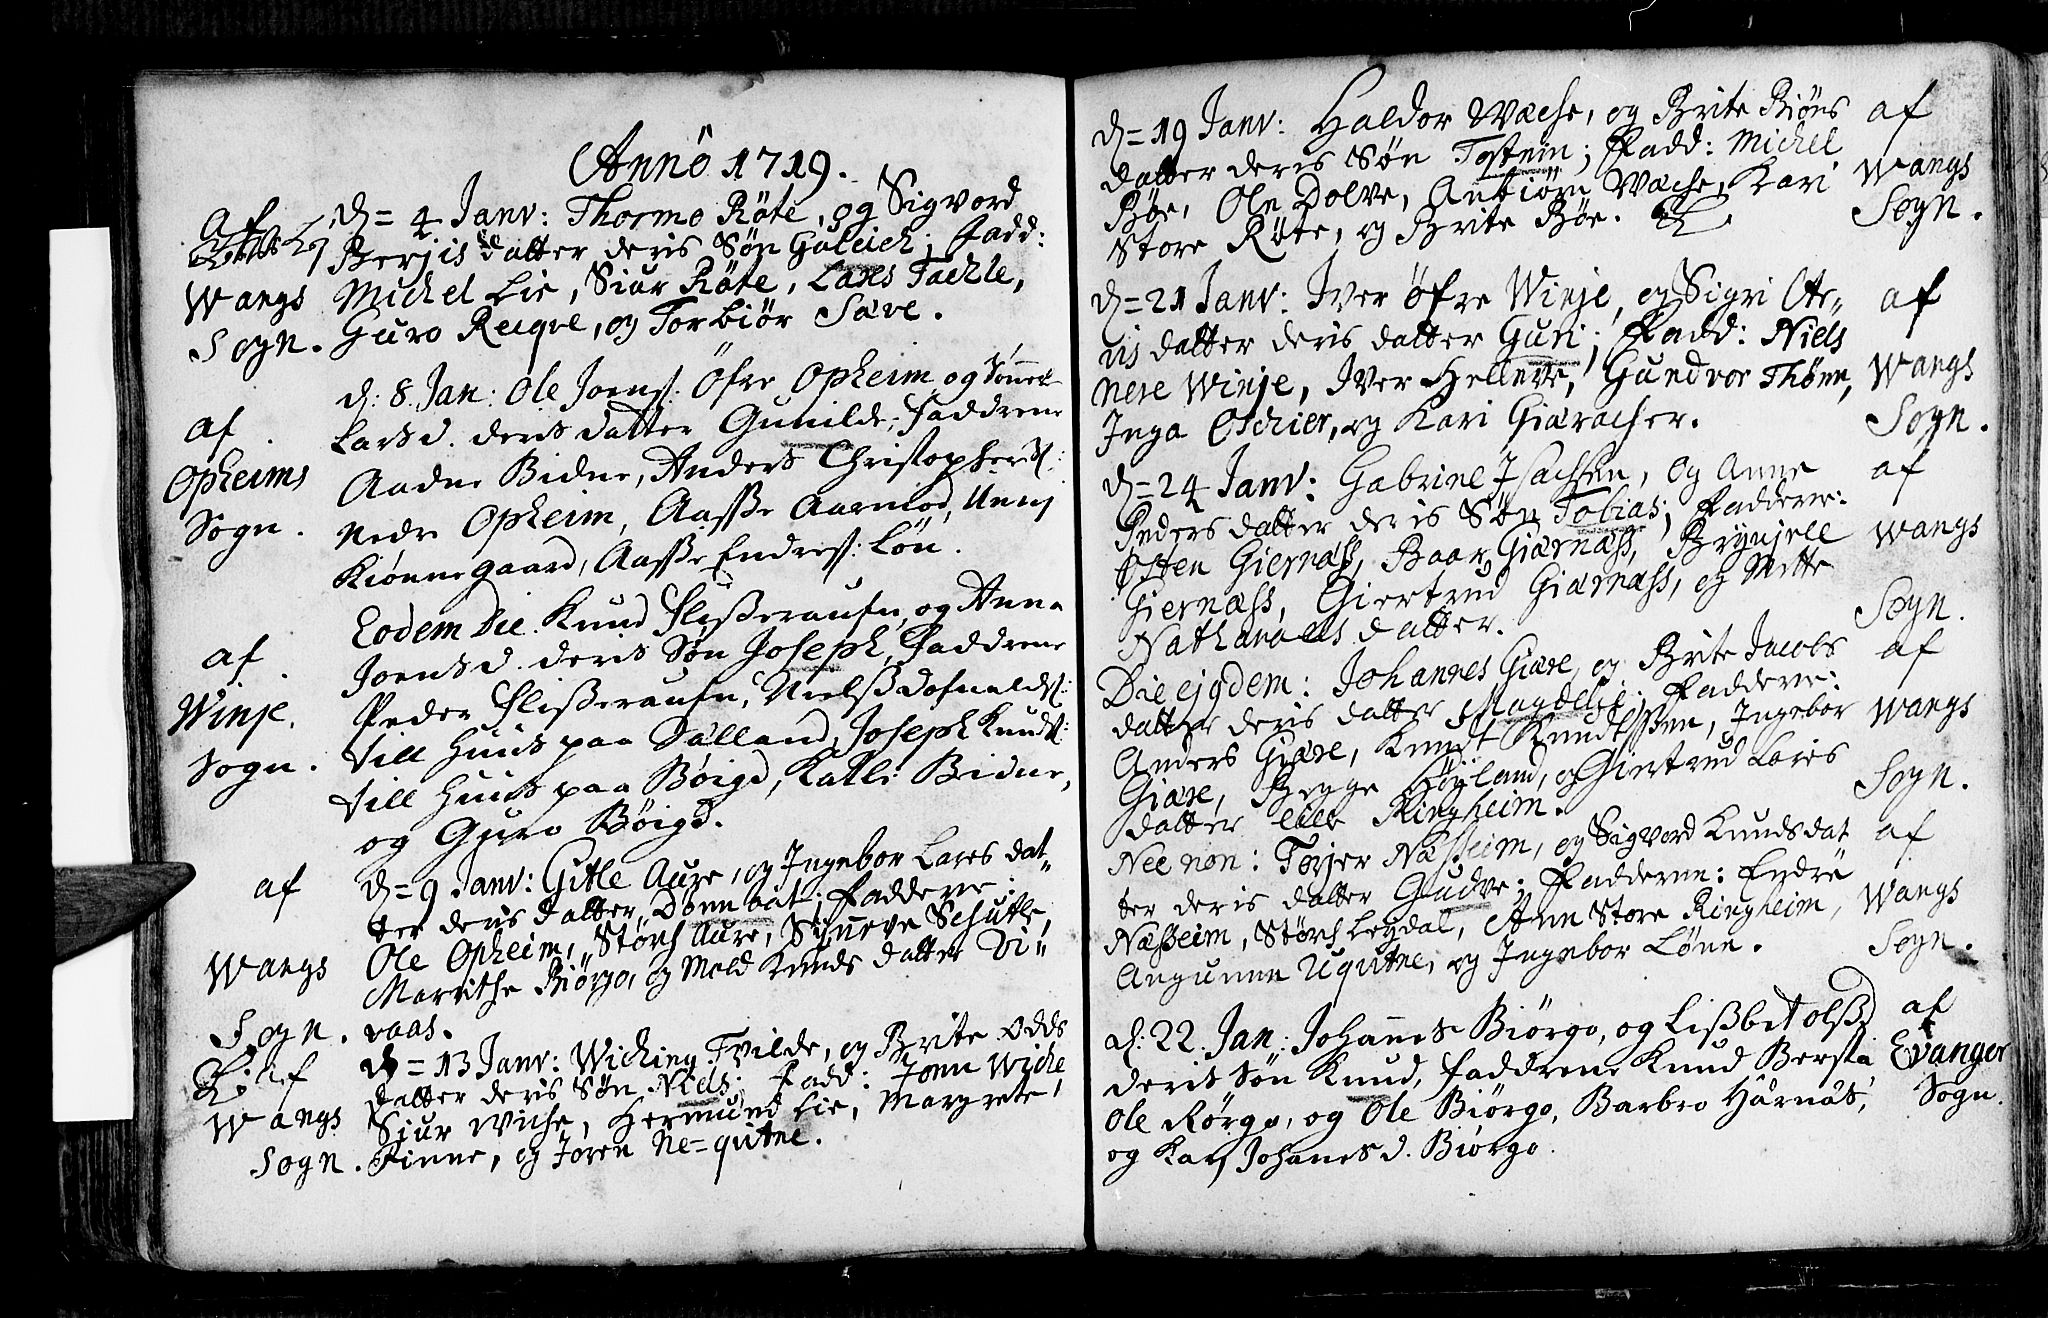 Anno 1719.
af
Wangs
Sogn.
d= 4 Janv: Thormo Röte, og Sigvord
Berjis datter deris Søn Goleich; Fadd:
Michel Lie, Siur Röte, Lares Tachle,
Guro Recqve, og Torbiör Sæve.
af
Opheims
Sogn.
d: 8. Jan: Ole Joens: Öfre Opheim og Sönnev
Larsd. deris datter Gunilde; Faddrene
Aadne Bidne, Anders Christophers:
Nedre Opheim, Aasße Aarmod, Unni
Kiönnegaard, Aasße Endres: Lön.
af
Winje.
Sogn.
Eodem Die. Knud Flißeraufn, og Anna
Joensd. deris Søn Joseph, Faddrene
Peder Flißeraufn, Nielß Dofnalds:
till Huus paa Sælland, Joseph Knuds:
till Huus paa Böigd, Kalli Bidne,
og Guro Böigd.
af
Wangs
Sogn.
d= 9 Janv: Gitle Aure, og Ingebor Lares dat-
ter deris datter Dönnbat; Faddere:
Ole Opheim, Störch Aure, Synneve Schutle,
Marrithe Biörgo, og Mold Knuds datter Vi-
raas.
af
Wangs
Sogn.
d= 13 Janv: Wiching Tvilde, og Brite Odds
datter deris Søn Niels; Fadd: Jonn Wiche
Siur Wiche, Hermund Lie, Margrete,
Finne, og Joren Ne=qvitne.
d= 19 Janv: Haldor Wæche, og Brite Biöns
datter deris Søn Tostein; Fadd: Michel
Böe, Ole Dolve, Anbiörn Wæche, Kari
Store Röte, og Brite Böe.
af
Wangs
Sogn.
d= 21 Janv: Iver Öfre Winje, og Sigri Ote-
ris datter deris datter Guri; Fadd: Niels
Nere Winje, Iver Hellnve, Gundvor Thönn,
Inga Oschier, og Kari Giæracher.
af
Wangs
Sogn.
d= 24 Janv: Gabriel Isachsen, og Anne
Peders datter deris Søn Tobias; Faddere:
Osten Giernæss, Baar Giærnæss, Brynjell
Giernæss, Giertrud Giærnæss, og Mette
Nathanaels datter.
af
Wangs
Sogn.
Die ejgdem: Johannes Giære, og Brite Jacobs
datter deris datter Magdeli; Faddere:
Anders Giære, Knudt Knudtssen, Ingebor
Giære, Brygge Höyland, og Giertrud Lares
datter lille Ringheim.
af
Wangs
Sogn.
Nec non: Torjer Næßeim, og Sigvord Knudsdat
ter deris datter Gudve; Fadderne: Endre
Næsseim, Störch Legdal, Ann Store Ringheim,
Angunne Uqvitne, og Ingebor Lönn.
af
Wangs
Sogn.
d: 22. Jan: Johannes Biörgo, og Lißbet olßd
deris Søn Knud, Faddrene Knud Berstæ
Ole Rörgo, og Ole Biörgo, Barbro Hårnås,
og Kari Johanesd. Biörgo.
af
Evanger
Sogn.